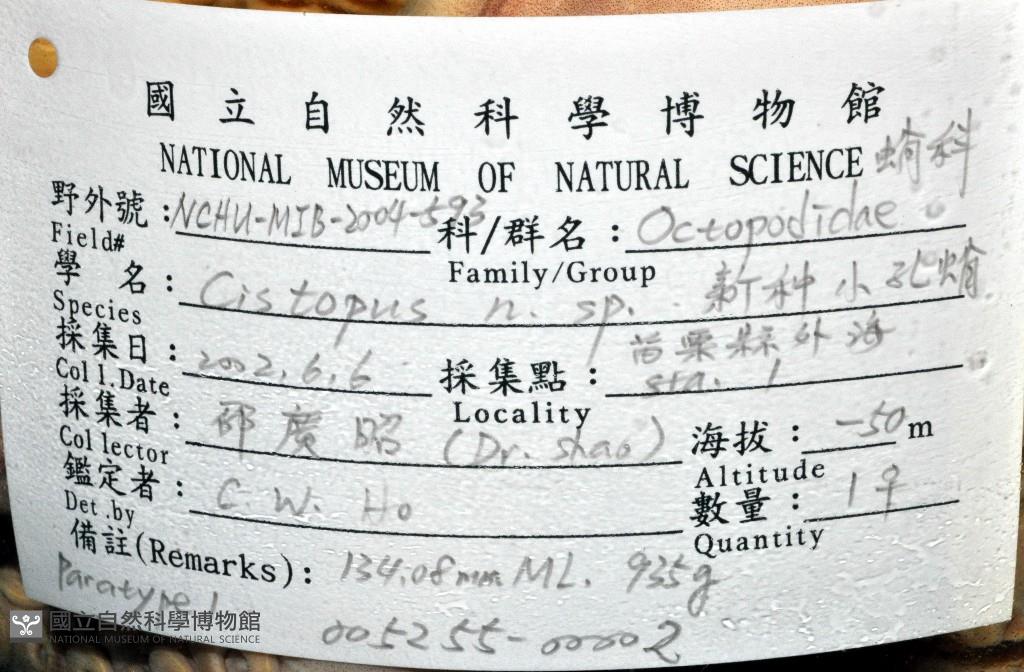 國立自然科學博物館
NATIONAL MUSEUM OF NATURAL SCIENCE 蛸科
野外號:NCHU-MIB-2004-593 科/群名:Octopodidae
Field# Family/Group
學 名:Cistopus n. sp. 新种小孔蛸
Species
採集日:2002.6.6 採集點:苗栗縣外海 sta. 1
Coll.Date Locality
採集者:邵廣昭 (Dr. Shao) 海拔:-50 m
Collector Altitude
鑑定者:C. W. Ho 數量:1♀
Det.by Quantity
備註(Remarks):134.08mm ML. 935g
Paratype 1
005255-00002
國立自然科學博物館
NATIONAL MUSEUM OF NATURAL SCIENCE